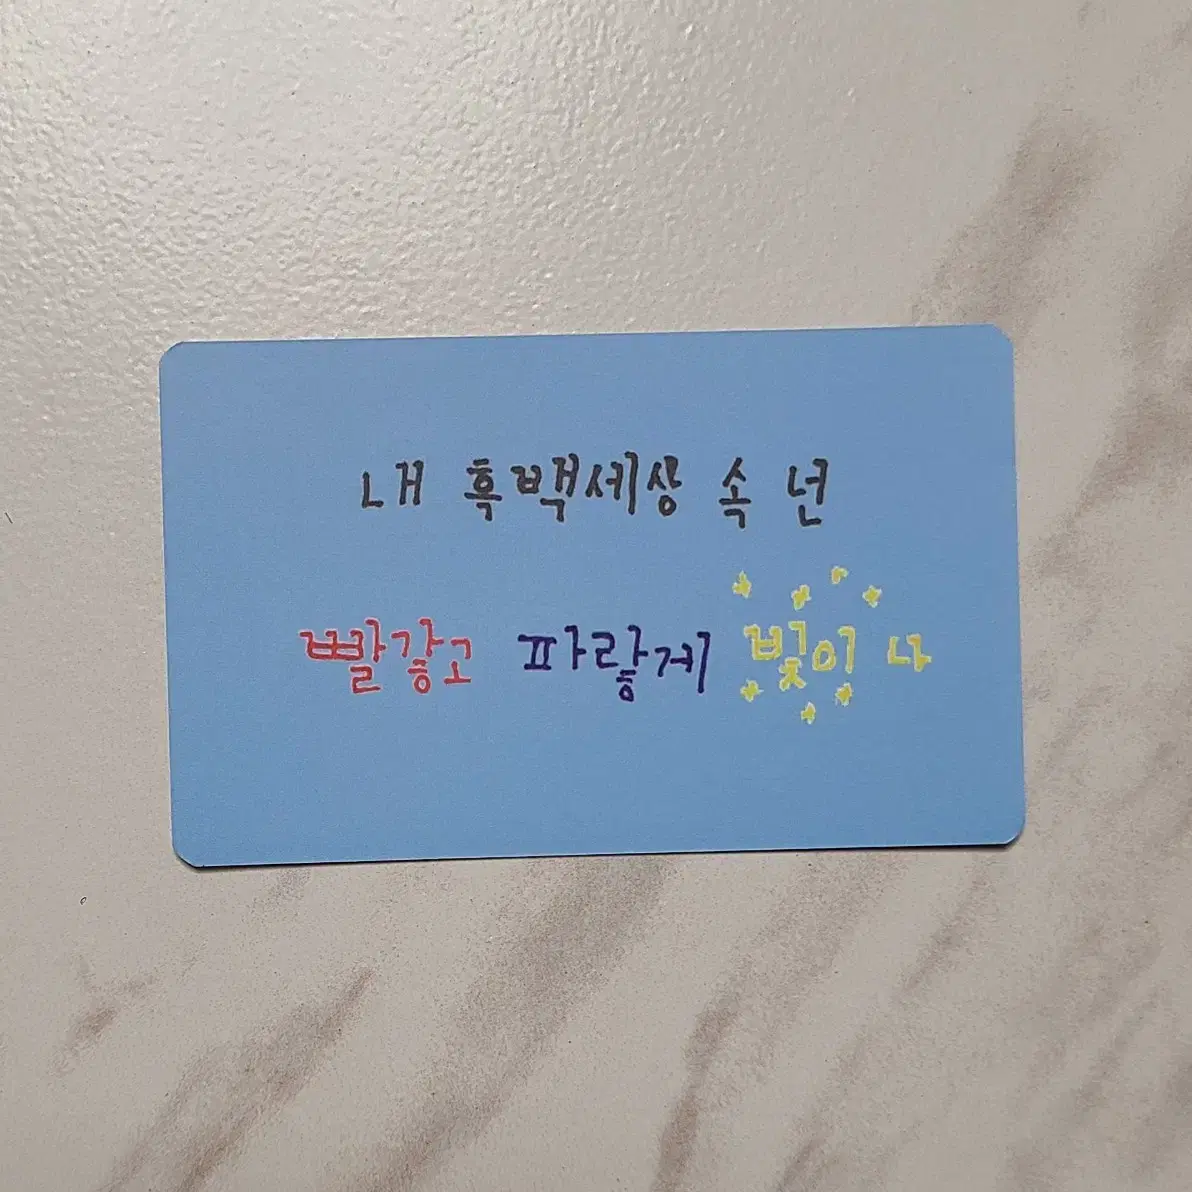 내 흑백세상 속 넌
빨갛고 파랗게 빛이 나